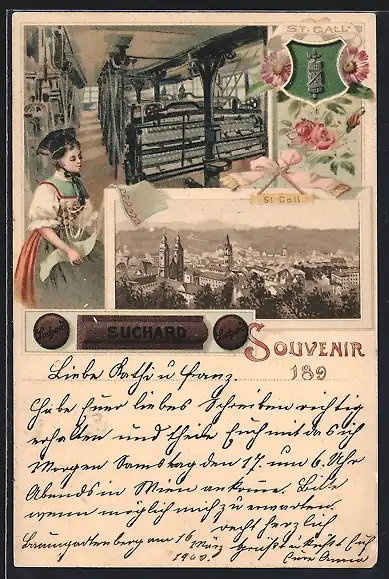 ST. GALL
St. Gall
Suchard SUCHARD Suchard
SOUVENIR
189
Liebe Kathi u Franz.
Habe Euer liebes Schreiben richtig
erhalten und theile Euch mit das ich
Morgen Samstag den 17. um 6. Uhr
Abends in Wien ankome. Bitte
wenn möglich mich zu erwarten.
recht herzlich
Baumgartenberg am 16 grüßt u küßt Euch
März
1900. Eure Anna